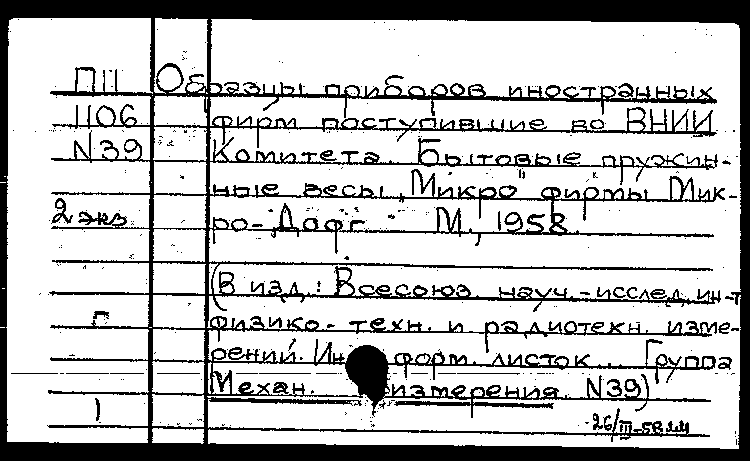 П11 Образцы приборов иностранных
1106 фирм поступившие во ВНИИ
N39 Комитета. Бытовые пружин-
ные весы „Микро" фирмы Мик-
2 экз ро-Дофг. М., 1958.
(В изд.: Всесоюз. науч.-исслед. ин-т
П физико-техн. и радиотехн. изме-
рений. Информ. листок... Группа
1 Механ. измерения. N39)
26/III-58